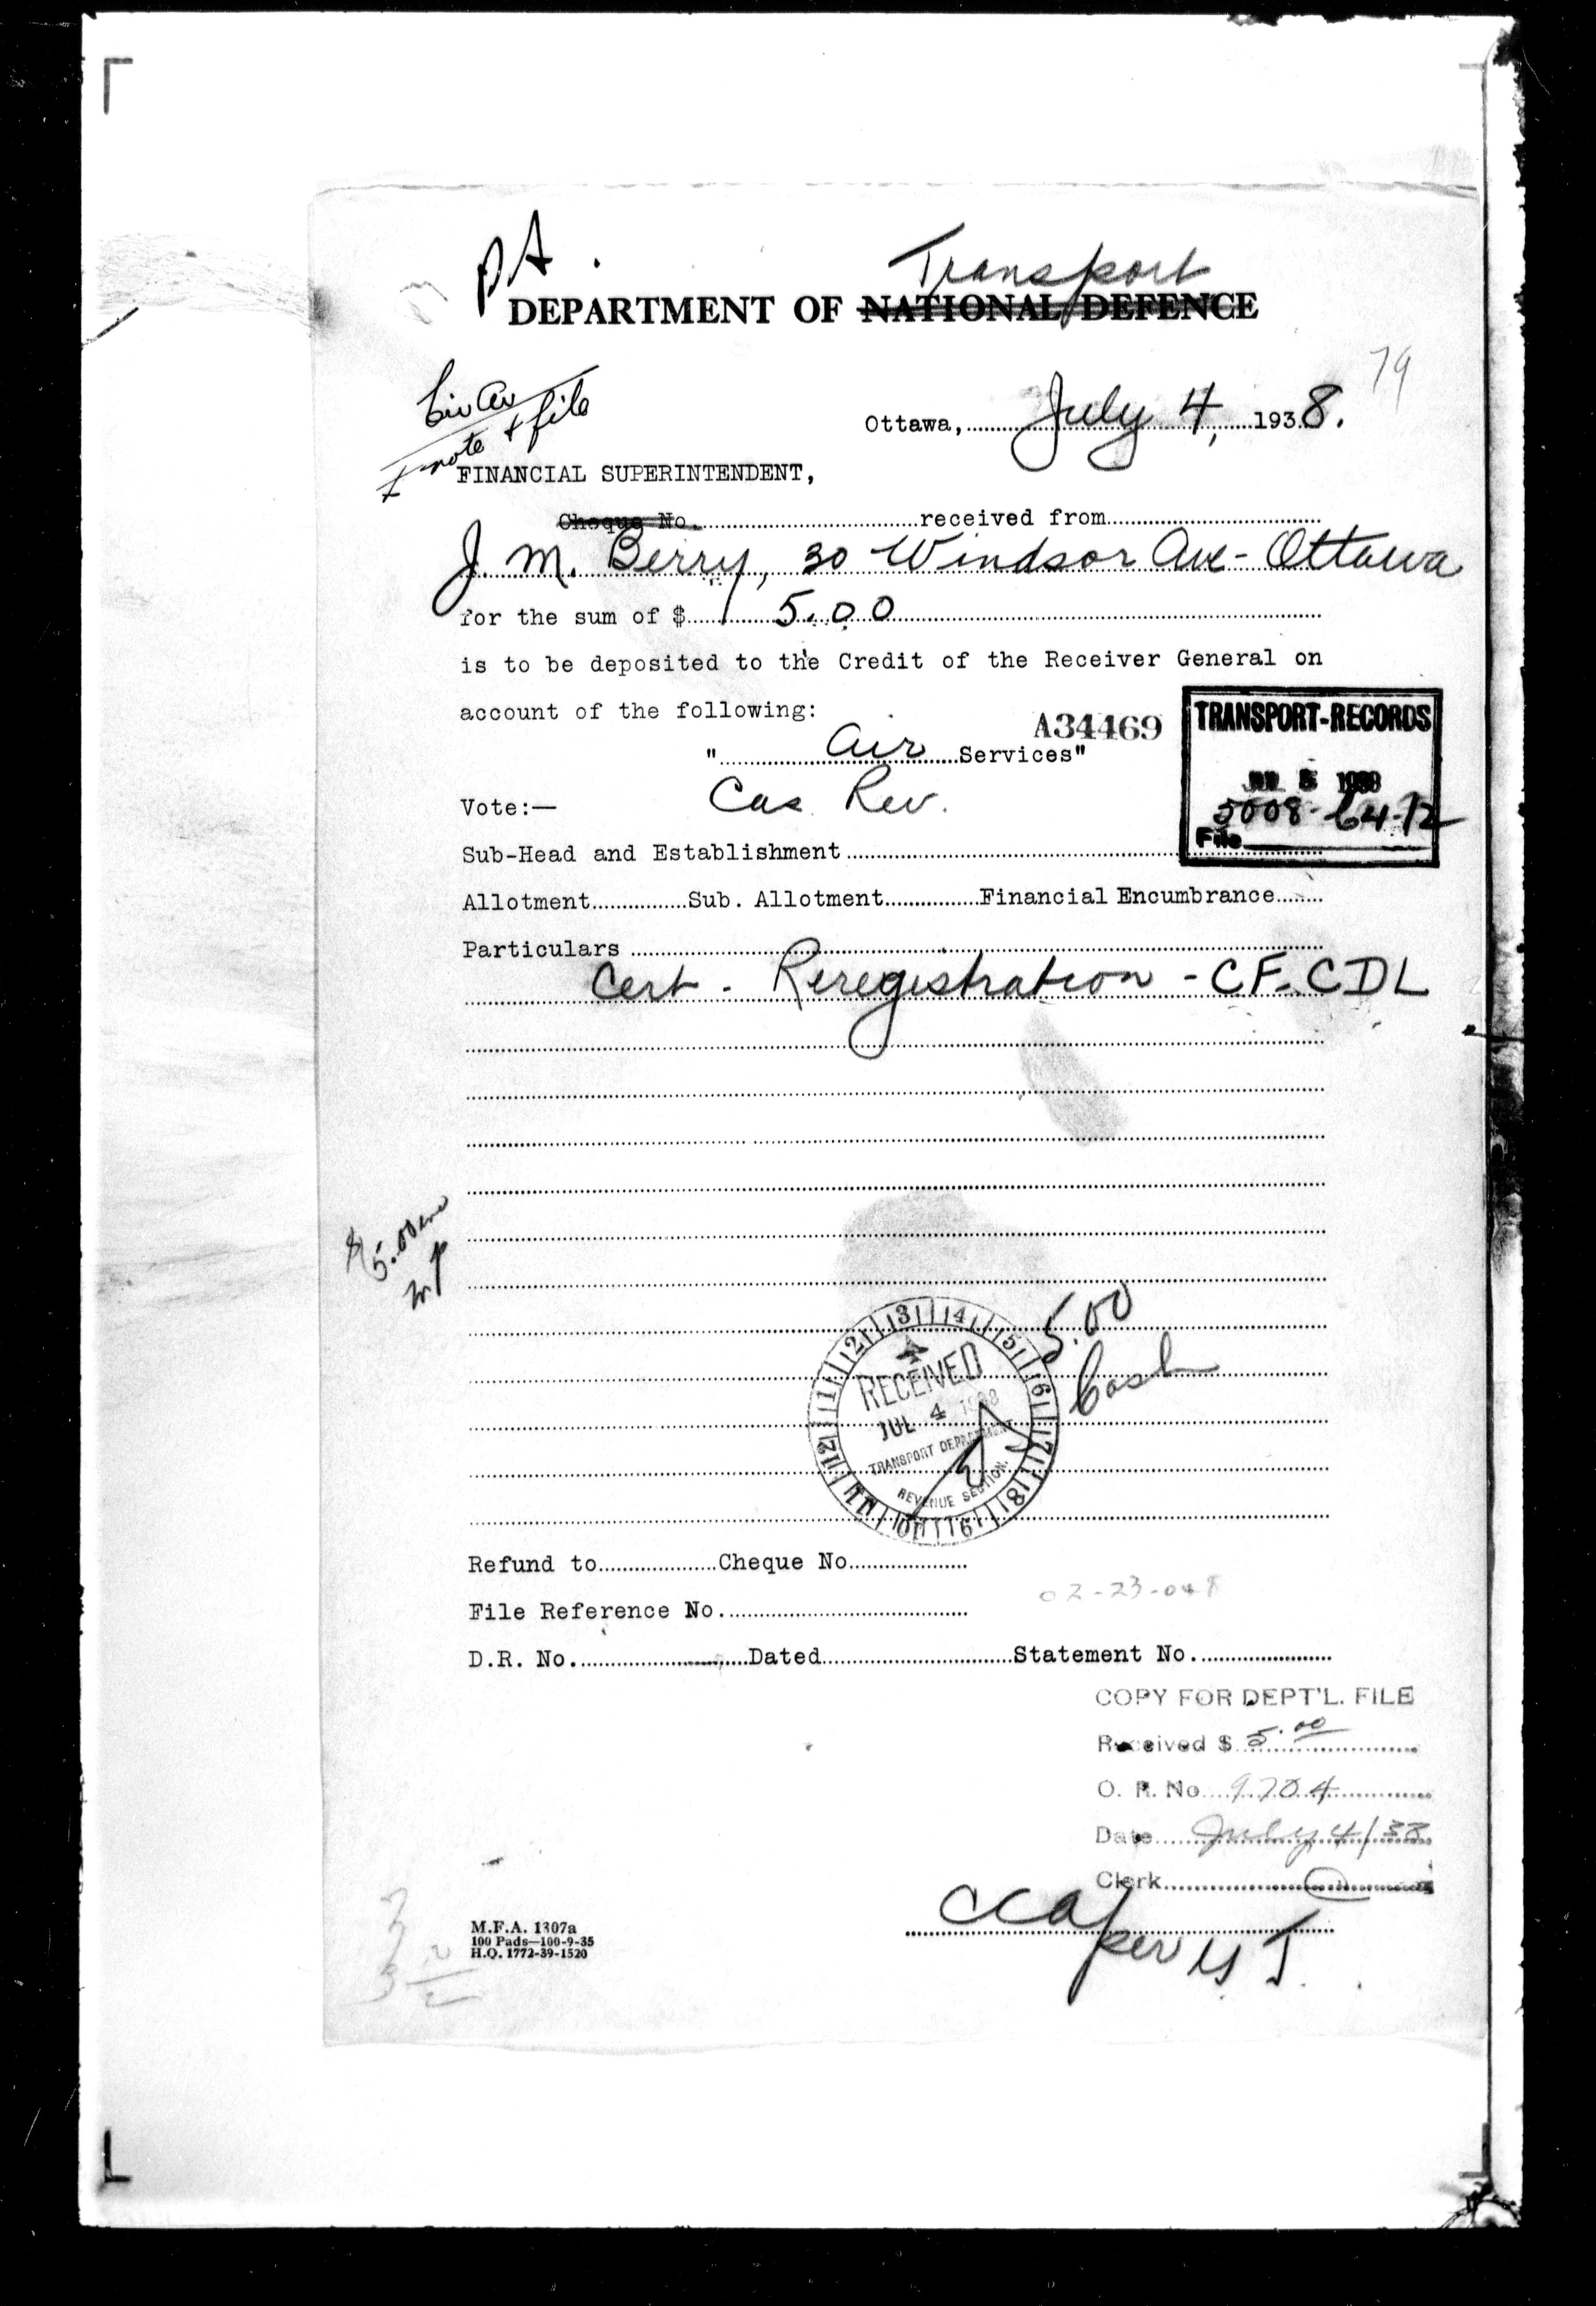 P.A.
Transport
DEPARTMENT OF NATIONAL DEFENCE
79
Civ Av
note & file
Ottawa, July 4, 1938.
FINANCIAL SUPERINTENDENT,
Cheque No. received from
J. M. Berry, 30 Windsor Ave - Ottawa
for the sum of $ 5.00
is to be deposited to the Credit of the Receiver General on
account of the following:
A34469
TRANSPORT-RECORDS
" Air Services"
5 1938
5008-64-12
File
Vote:— Cas Rev.
Sub-Head and Establishment
Allotment Sub. Allotment Financial Encumbrance
Particulars
Cert - Reregistration - CF-CDL
$5.00
5.00
Cash
1 2 3 4 5 6 7 8 9 10 11 12
RECEIVED
JUL 4 1938
TRANSPORT DEPARTMENT
REVENUE SECTION.
Refund to Cheque No
02-23-048
File Reference No.
D.R. No. Dated Statement No.
COPY FOR DEPT'L. FILE
Received $ 5.00
O. R. No 9704
Date July 4/38
Clerk
per
M.F.A. 1307a
100 Pads—100-9-35
H.Q. 1772-39-1520